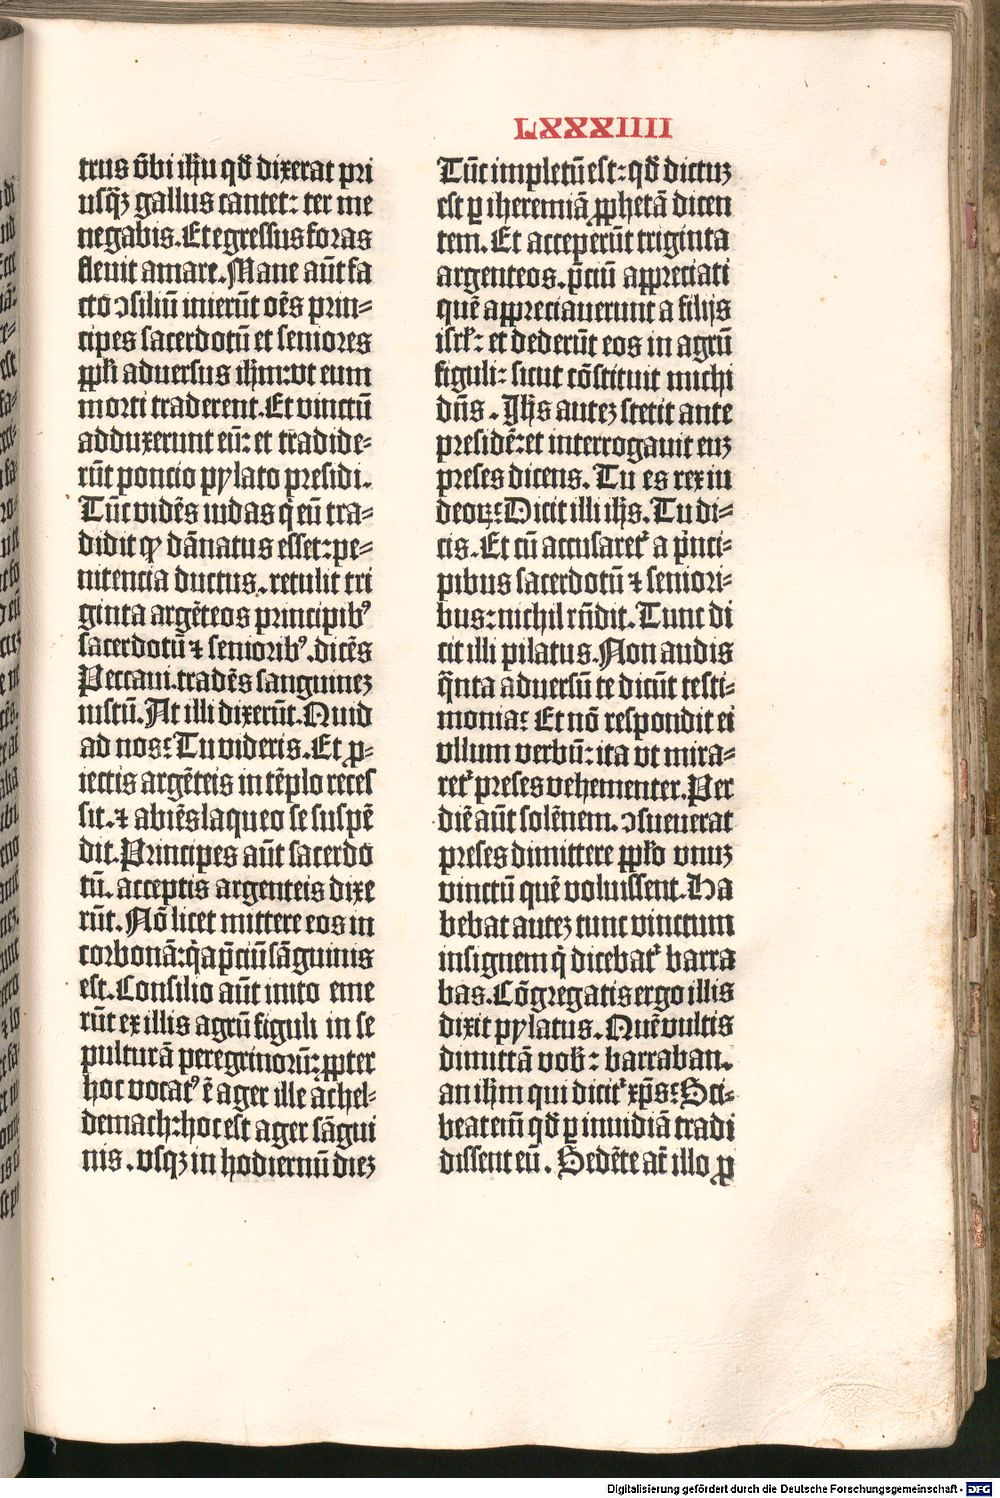 LXXXIIII
trus ũbi ihũ qđ dixerat pri
usq̃ꝫ gallus cantet: ter me
negabis. Et egressus foras
fleuit amare. Mane aũt fa
cto ↄsiliũ inierũt oẽs prin⸗
cipes sacerdotũ et seniores
ppłi aduersus ihm̃: vt eum
morti traderent. Et vinctũ
adduxerunt eũ: et tradide⸗
rũt poncio pylato presidi.
Tũc vidẽs iudas q̇ eũ tra⸗
didit ꝙ dãnatus esset: pe⸗
nitencia ductus. retulit tri
ginta argẽteos principibꝰ
sacerdotũ ⁊ senioribꝰ. dicẽs
Peccaui. tradẽs sanguineꝫ
iustũ. At illi dixerũt. Quid
ad nos: Tu videris. Et ꝓ⸗
iectis argẽteis in tẽplo reces
sit. ⁊ abiẽs laqueo se suspẽ
dit. Principes aũt sacerdo
tũ. acceptis argenteis dixe
rũt. Nõ licet mittere eos in
corbonã: q̇a p̃ciũ sãguinis
est. Consilio aũt inito eme
rũt ex illis agrũ figuli in se
pulturã peregrinorũ: ꝓpter
hoc vocat᷑ ẽ ager ille achel⸗
demach: hoc est ager sãgui
nis. vsqꝫ in hodiernũ dieꝫ
Tũc impletũ est: qđ dictuꝫ
est ꝑ iheremiã ꝓphetã dicen
tem. Et acceperũt triginta
argenteos. p̃ciũ appreciati
quẽ appreciauerunt a filijs
isrł: et dederũt eos in agrũ
figuli: sicut cõstituit michi
dñs. Jhs̃ auteꝫ stetit ante
presidẽ: et interrogauit euꝫ
preses dicens. Tu es rex iu
deoꝝ: Dicit illi ihs̃. Tu di⸗
cis. Et cũ accusaret᷑ a ṗnci⸗
pibus sacerdotũ ⁊ seniori⸗
bus: nichil rñdit. Tunc di
cit illi pilatus. Non audis
q̃nta aduersũ te dicũt testi⸗
monia: Et nõ respondit ei
vllum verbũ: ita vt mira⸗
ret᷑ preses vehementer. Per
diẽ aũt solẽnem. ↄsueuerat
preses dimittere ppło vnuꝫ
vinctũ quẽ voluissent. Ha
bebat auteꝫ tunc vinctum
insignem q̇ dicebat᷑ barra
bas. Cõgregatis ergo illis
dixit pylatus. Quẽ vultis
dimittã vob̃: barraban.
an ihm̃ qui dicit᷑ xp̃s: Sci⸗
bat em̃ qđ ꝑ inuidiã tradi
dissent eũ. Sedẽte at̃ illo ꝓ
Digitalisierung gefördert durch die Deutsche Forschungsgemeinschaft - DFG